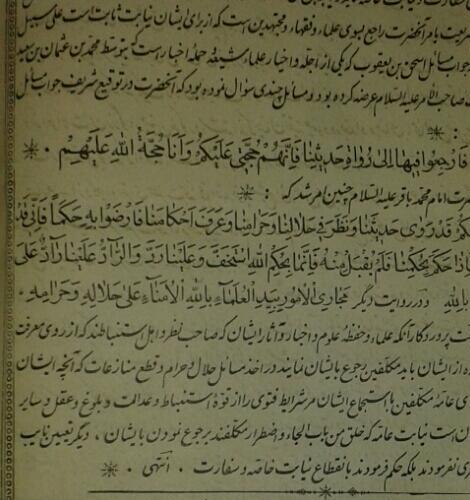 شریعت بامر آنحضرت راجع بسوی علماء و فقهاء و مجتهدین است که از برای ایشان نیابت ثابت است علی سبیل
جواب مسائل اسحق بن یعقوب که یکی از اجله و اخیار علماء شیعه حمله اخبار است که بتوسط محمد بن عثمان بن سعید
صاحب الامر علیه السلام عرضه کرده بود و مسائل چندی سؤال نموده بود که آنحضرت در توقیع شریف جواب مسائل
:
فَارْجِعُوا فیهٰا اِلیٰ رُوٰاةِ حَدیثِنٰا فَاِنَّهُمْ حُجَّتی عَلَیْکُمْ وَ اَنَا حُجَّةُ اللهِ عَلَیْهِمْ .
حضرت امام محمد باقر علیه السلام چنین امر شد که :
قَدْ رَوٰی حَدیثَنٰا وَ نَظَرَ فی حَلٰالِنٰا وَ حَرٰامِنٰا وَ عَرَفَ اَحْکٰامَنٰا فَارْضَوْا بِهِ حَکَماً فَاِنّی قَدْ
حَکَمَ بِحُکْمِنٰا فَلَمْ یُقْبَلْ مِنْهُ فَاِنَّمٰا بِحُکْمِ اللهِ اسْتَخَفَّ وَ عَلَیْنٰا رَدَّ وَ الرّٰادُّ عَلَیْنٰا رٰادٌّ عَلَی
بِاللهِ و در روایت دیگر مَجٰاری الْاُمُورِ بِیَدِ الْعُلَمٰاءِ بِاللهِ الْاُمَنٰاءِ عَلیٰ حَلٰالِهِ وَ حَرٰامِهِ .
پروردگار آنکه علماء و حفظه علوم و اخبار و آثار ایشان که صاحب نظر و اهل استنباطند که از روی معرفت
از ایشان باید مکلفین رجوع بایشان نمایند در اخذ مسائل حلال و حرام و قطع منازعات که آنچه ایشان
عامه مکلفین با استجماع ایشان مر شرایط فتوی را از قوۀ استنباط و عدالت و بلوغ و عقل و سایر
است نیابت عامه که خلق من باب الجاء و اضطرار مکلفند برجوع نمودن بایشان ، دیگر تعیین نایب
نفرمودند بلکه حکم فرمودند بانقطاع نیابت خاصه و سفارت . انتهی .